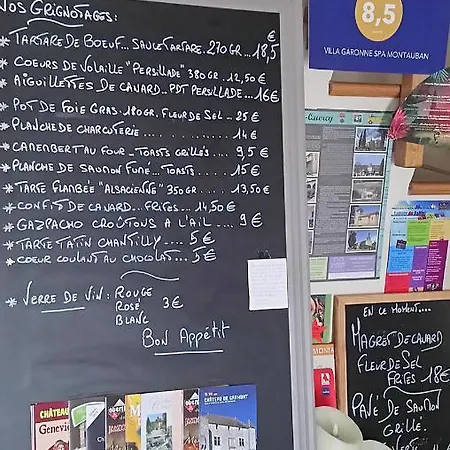 NOS GRIGNOTAGES:
* TARTARE DE BOEUF... SAUCE TARTARE. 270 GR... 18,5 €
* COEURS DE VOLAILLE "PERSILLADE" 380 GR. 12,50 €
* AIGUILLETTES DE CANARD... PDT PERSILLADE... 16 €
* POT DE FOIE GRAS. 180 GR. FLEUR DE SEL... 25 €
* PLANCHE DE CHARCUTERIE ... 14 €
* CAMENBERT AU FOUR... TOASTS GRILLÉS... 9,5 €
* PLANCHE DE SAUMON FUMÉ... TOASTS.... 15 €
* TARTE FLAMBÉE "ALSACIENNE" 350 GR... 13,50
* CONFITS DE CANARD... FRITES... 14,50 €
* GAZPACHO CROÛTONS A L'AIL... 9 €
* TARTE TATIN CHANTILLY.... 5 €
* COEUR COULANT AU CHOCOLAT... 5 €
* VERRE DE VIN: ROUGE
ROSÉ 3 €
BLANC
BON APPÉTIT
8,5
VILLA GARONNE SPA MONTAUBAN
Quercy
EN CE MOMENT....
MAGRET DE CANARD
FLEUR DE SEL
FRITES 18 €
PAVÉ DE SAUMON
GRILLÉ.
CHÂTEAU
Genevi
CHÂTEAU DE GRAMONT